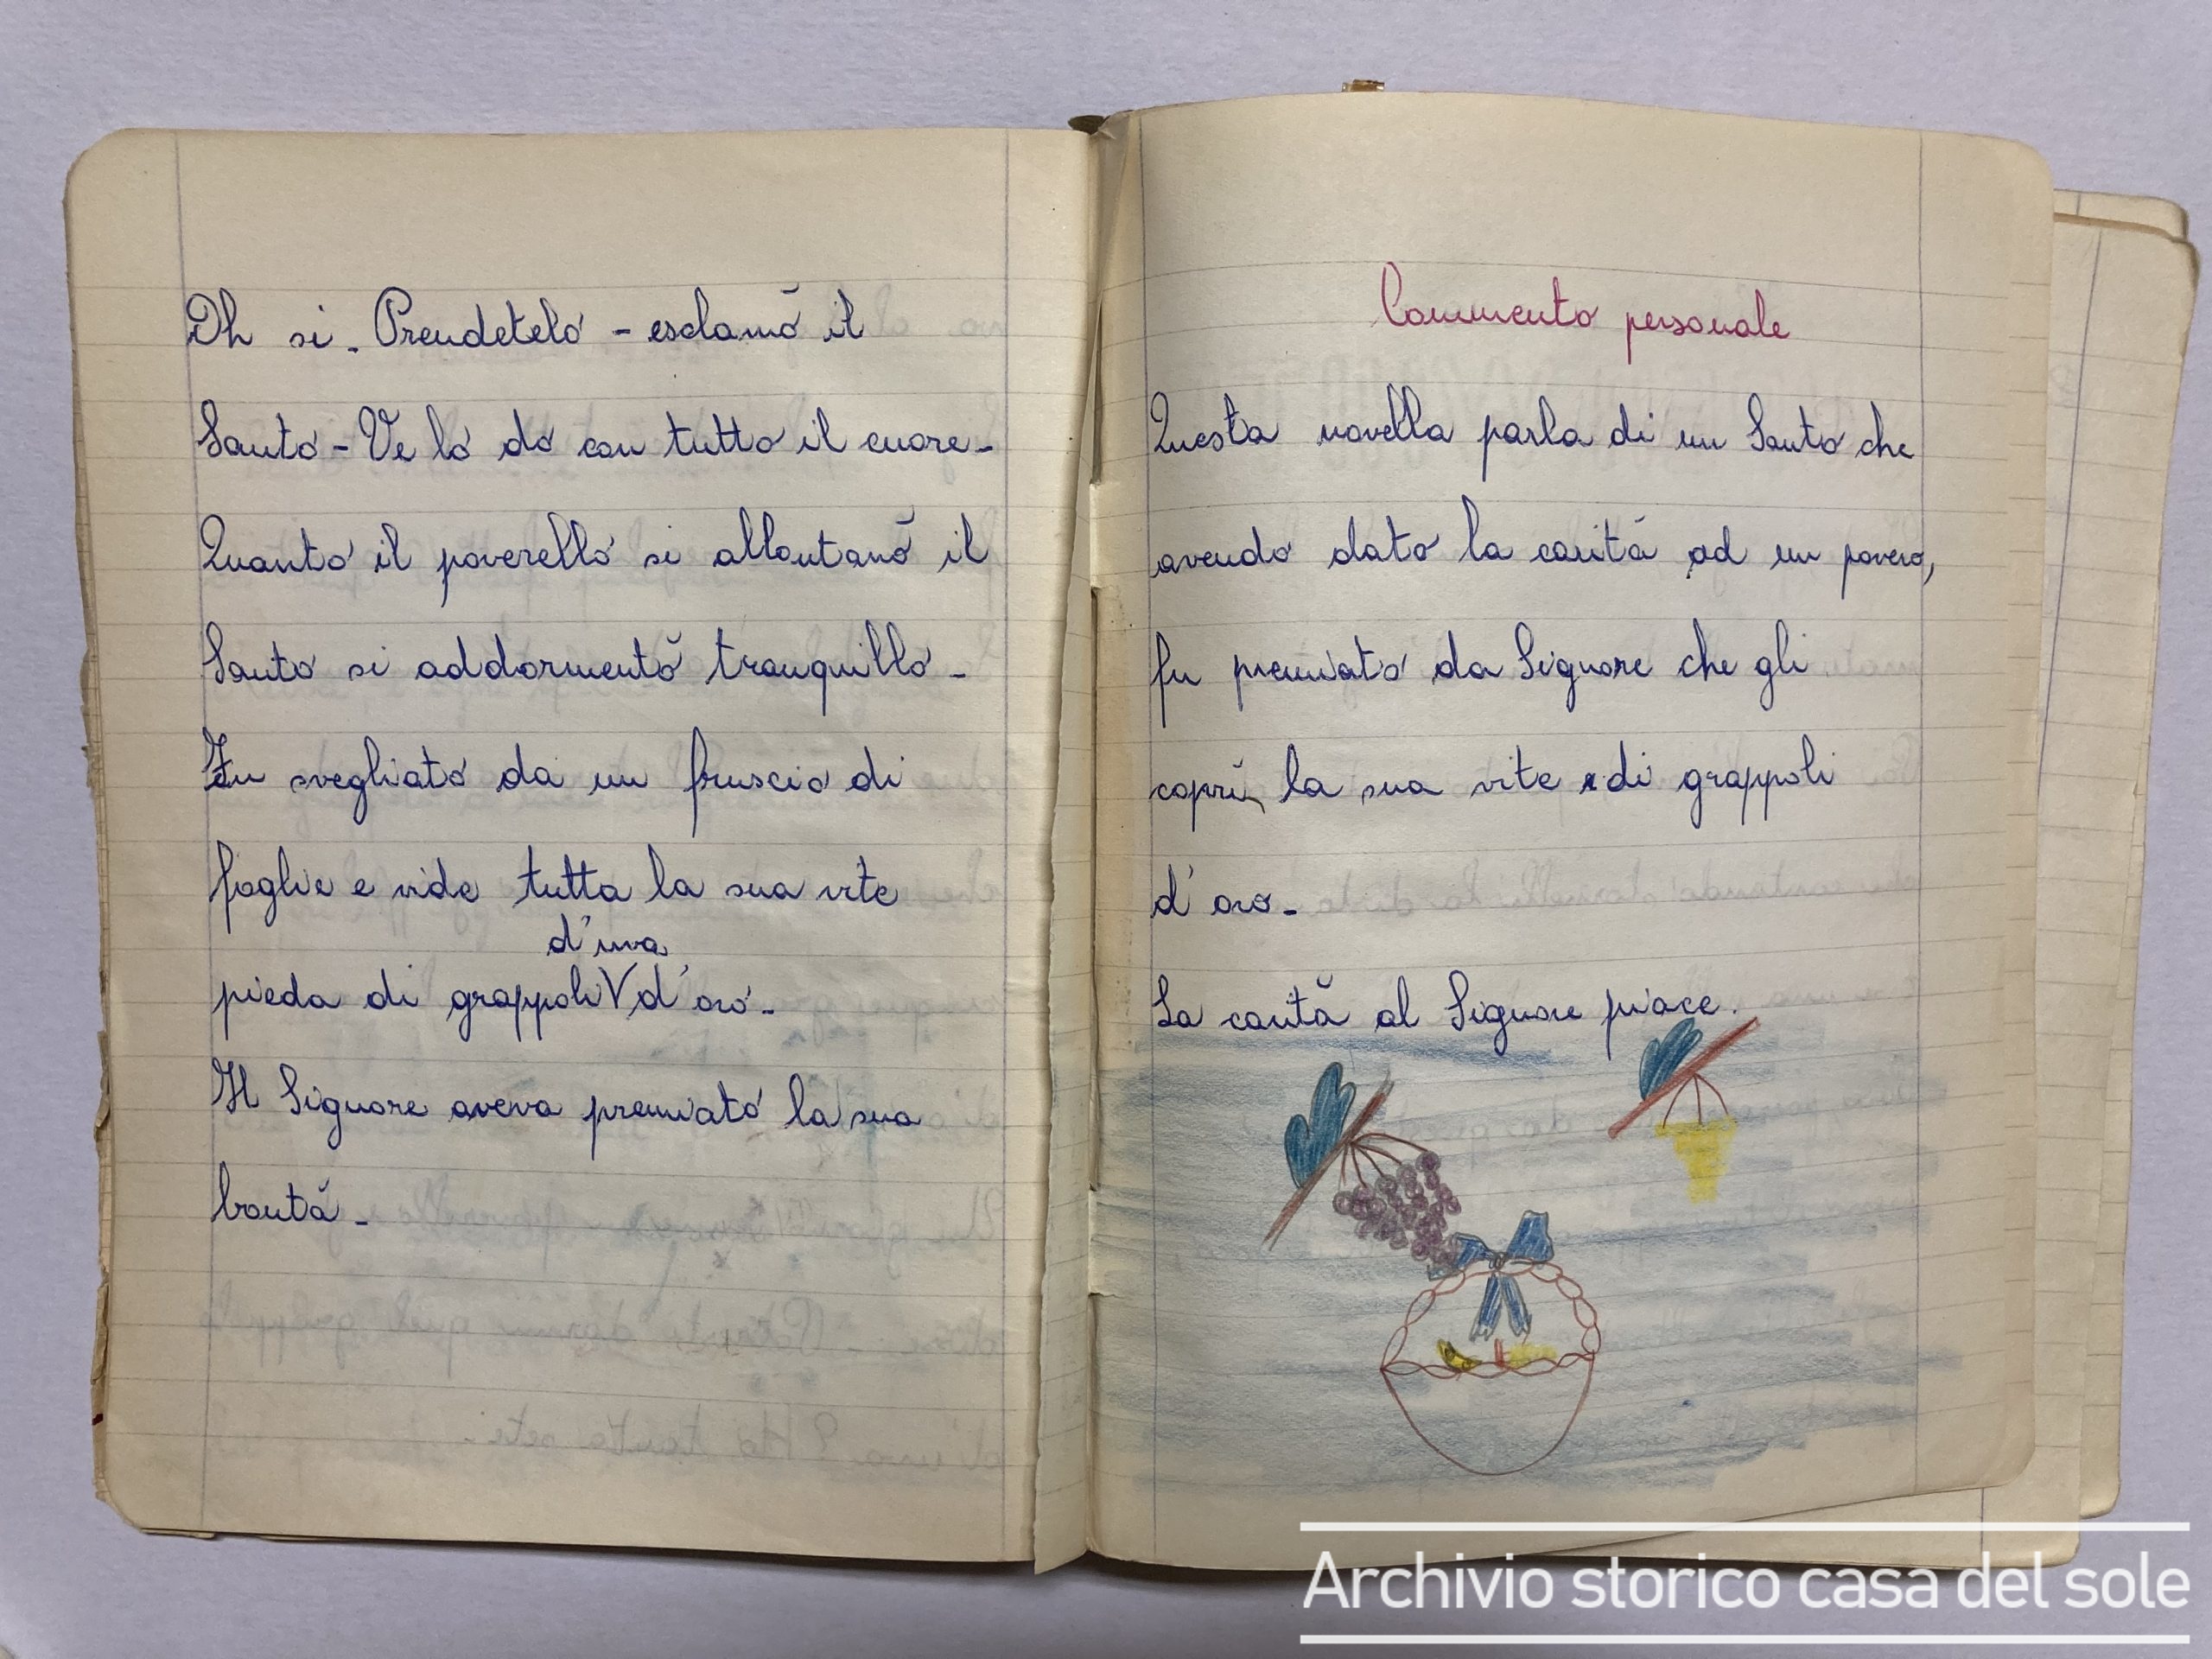 Oh si. Prendetelo - esclamò il
Santo - Ve lo do con tutto il cuore.
Quanto il poverello si allontanò il
Santo si addormentò tranquillo.
Fu svegliato da un fruscio di
foglie e vide tutta la sua vite
d'uva
pieda di grappoli V d'oro.
Il Signore aveva premiato la sua
bontà.
Commento personale
Questa novella parla di un Santo che
avendo dato la carità ad un povero,
fu premiato da Signore che gli
coprì, la sua vite di grappoli
d'oro.
La carità al Signore piace.
Archivio storico casa del sole